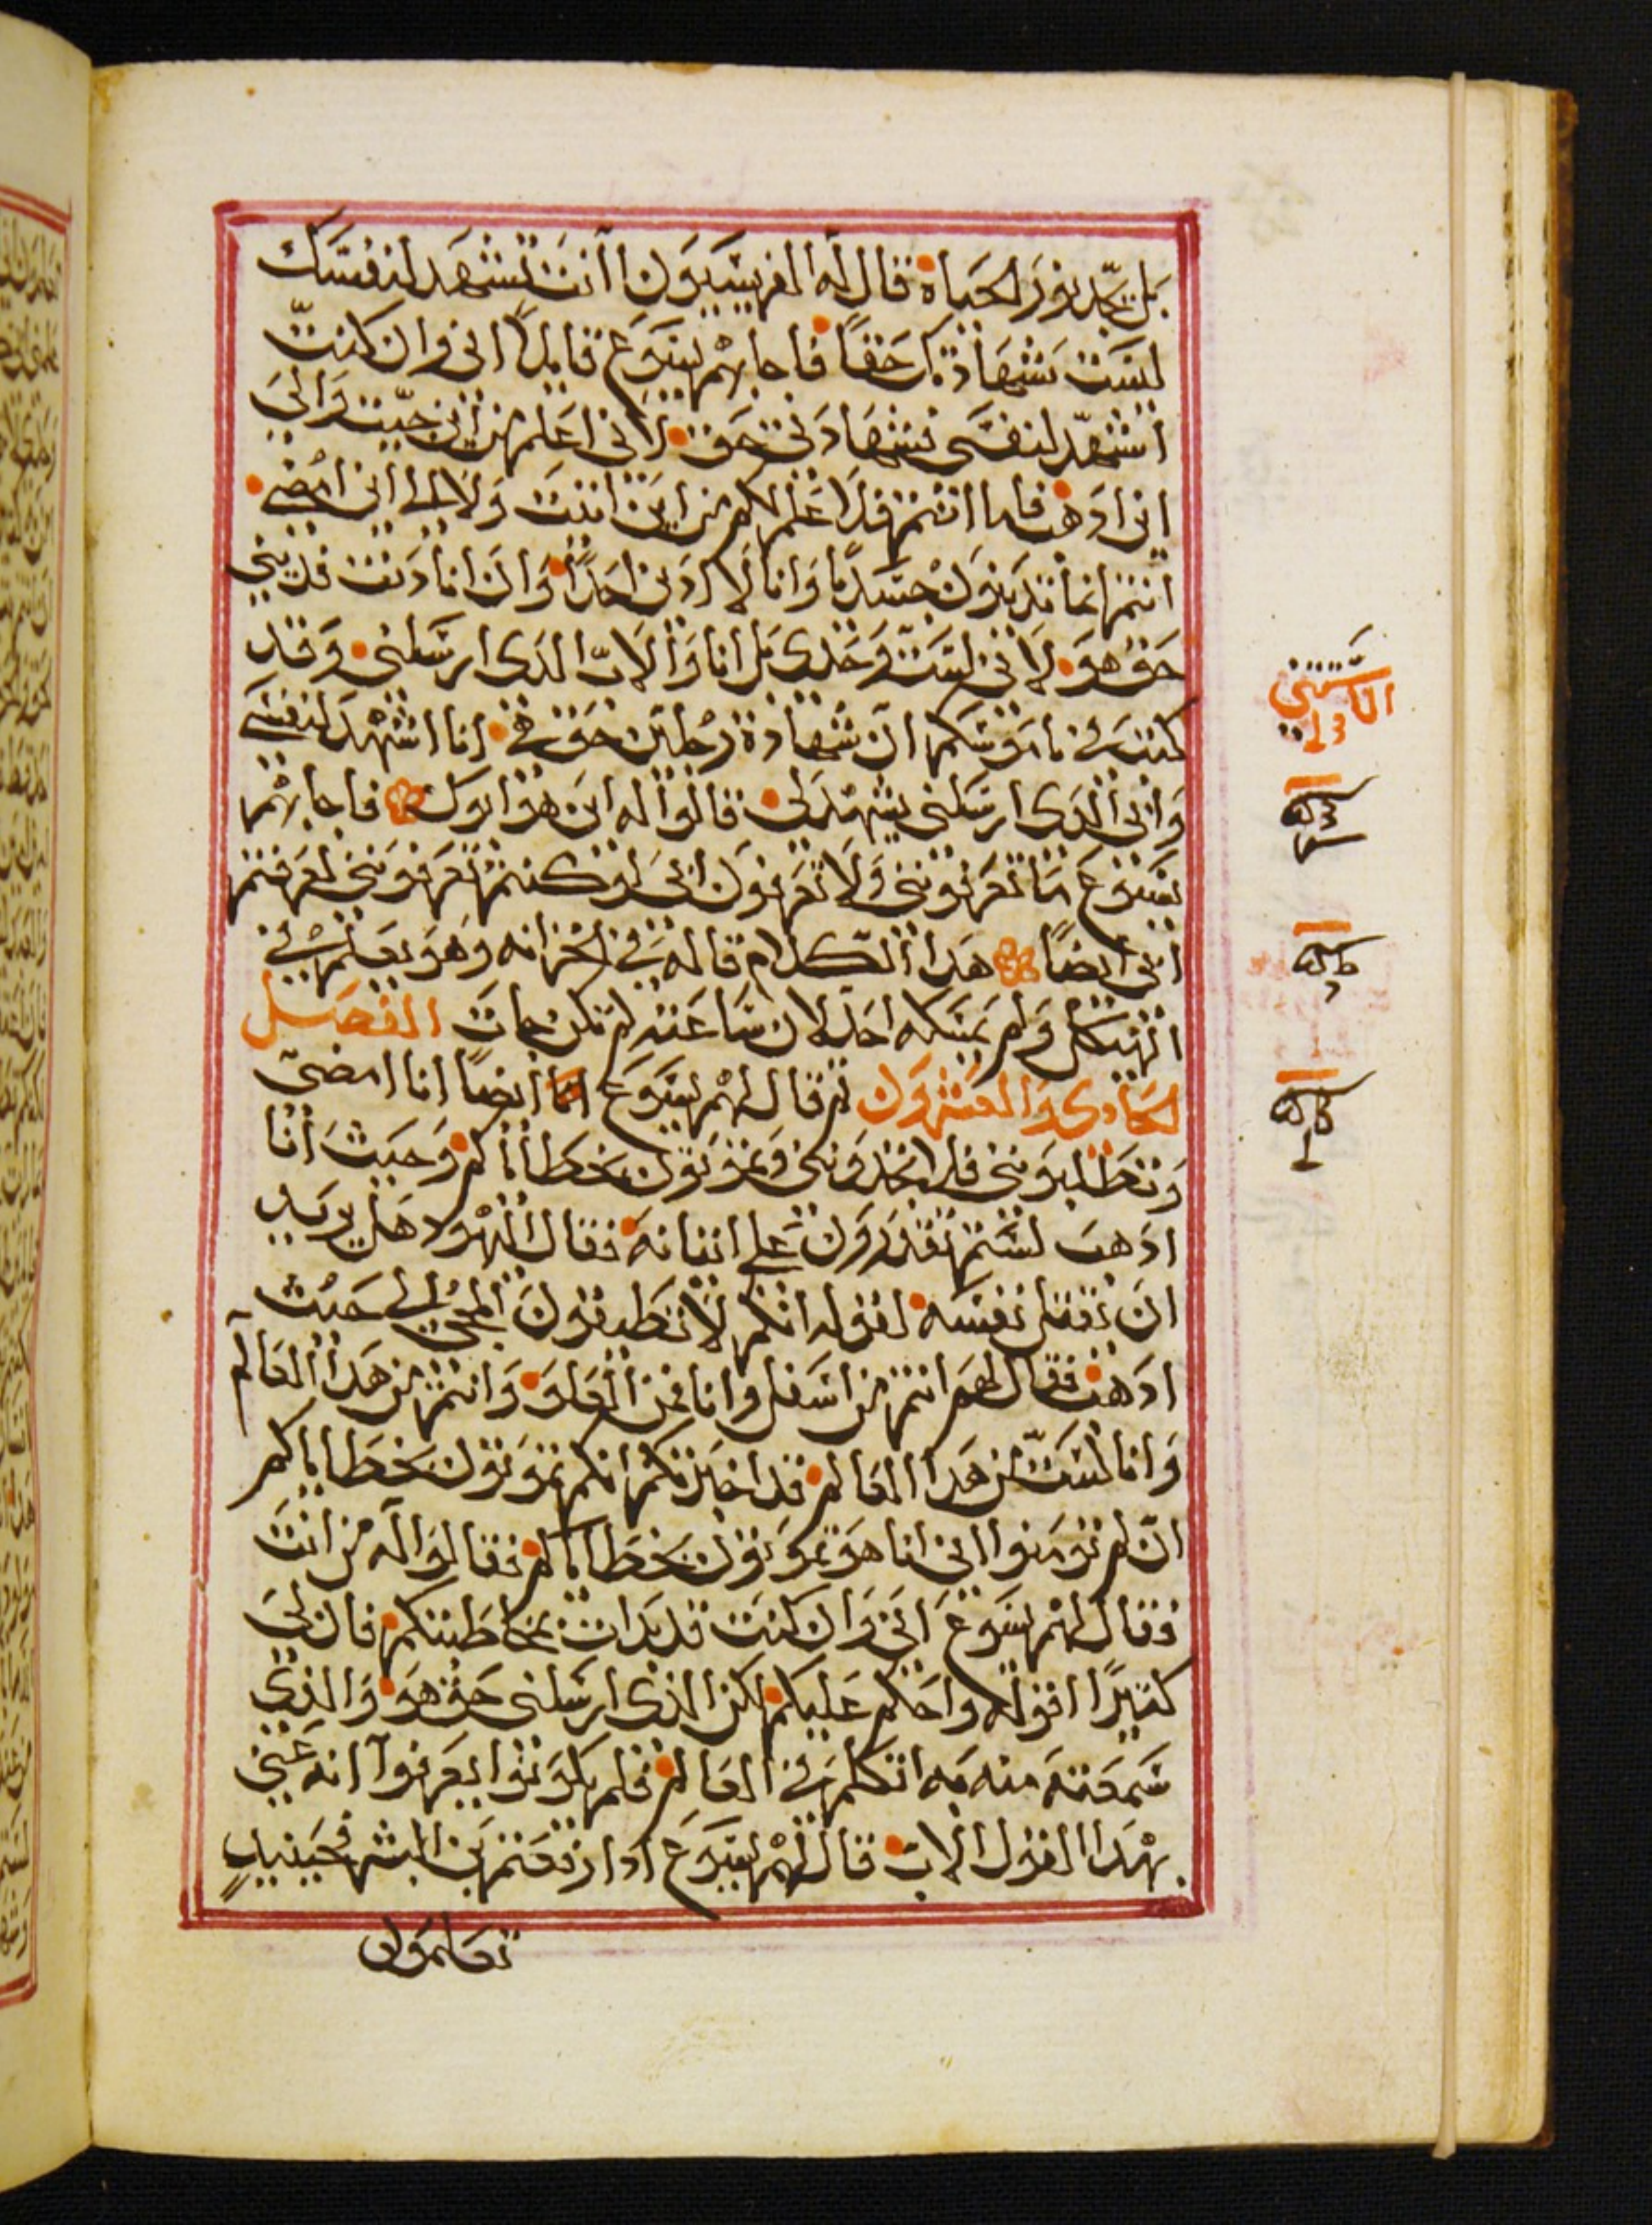 بل يجد نور الحياه قال له الفريسيون اانت تشهد لنفسك
ليست شهادتك حقاً فاجابهم يسوع قايلاً انى وان كنت
اشهد لنفسى فشهادتى حق لانى اعلم من اين جيت والى
اين ادهب فاما انتم فلا علم لكم من اين اتيت ولا الى اين امضى
انتم انما تدينون جسداً وانا لا ادين احداً وان انا دنت فدينى
حق هو لانى لست وحدى بل انا والاب الدى ارسلنى وقد
كتب فى ناموسكم ان شهادة رجلين حق هى انا اشهد لنفسى
وابى الدى ارسلنى يشهد لى قالوا له اين هو ابوك فاجابهم
يسوع ما تعرفوننى ولا تعرفون ابى لو كنتم تعرفوننى لعرفتم
ابى ايضاً هدا الكلام قاله فى الخزانه وهو يعلم فى
الهيكل ولم يمسكه احد لان ساعته لم تكن جات الفصل
الحادى والعشرون ثم قال لهم يسوع ايضاً انا امضى
وتطلبوننى فلا تجدوننى وتموتون بخطاياكم وحيث انا
ادهب لستم تقدرون على اتيانه فقال اليهود هل يريد
ان يقتل نفسه لقوله انكم لا تطيقون المجى الى حيث
ادهب فقال لهم انتم من اسفل وانا من العلو وانتم من هدا العالم
وانا لست من هدا العالم قد اخبرتكم انكم تموتون بخطاياكم
ان لم تومنوا انى انا هو تموتون بخطاياكم فقالوا له من انت
فقال لهم يسوع انى وان كنت قد بدات بمخاطبتكم فان لى
كثيراً اقوله واحكم عليكم لكن الذى ارسلنى حق هو والذى
سمعته منه به اتكلم فى العالم فلم يكونوا يعرفوا انه عنى
بهدا القول الاب قال لهم يسوع ادا رفعتم ابن البشر فحينيدٍ
تعلمون